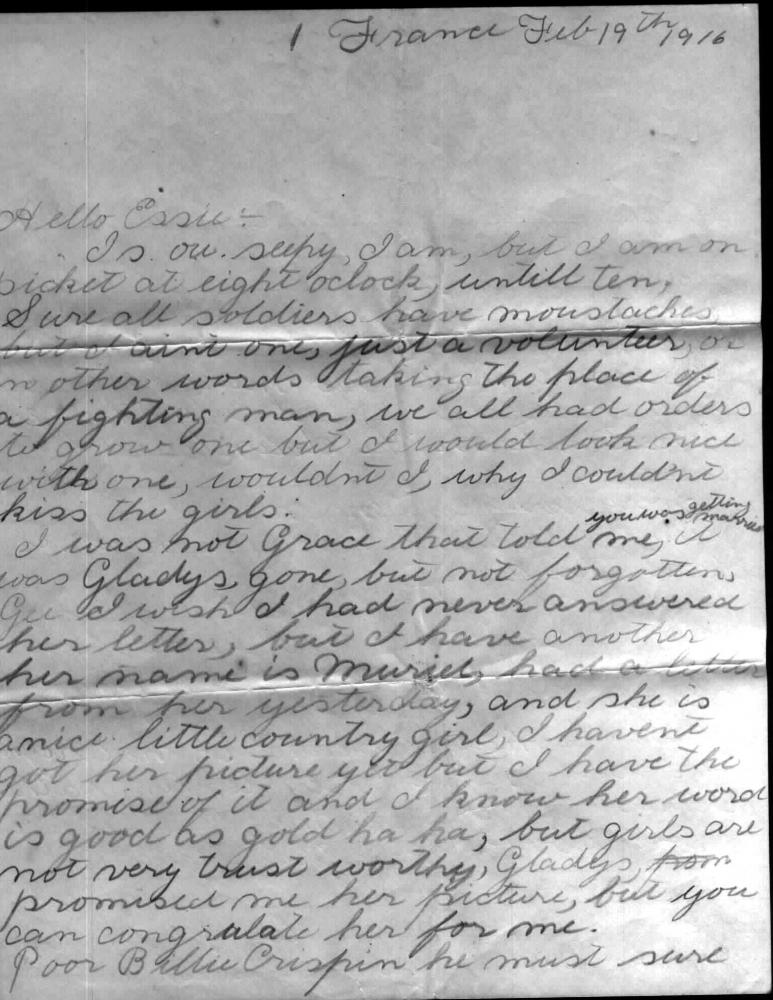 1 France Feb 19th 1916
Hello Essie:-
Is. ou. seepy, I am, but I am on
picket at eight oclock, untill ten,
Sure all soldiers have moustaches,
but I aint one, just a volunteer, or
in other words taking the place of
a fighting man, we all had orders
to grow one but I would look nice
with one, wouldnt I, why I couldnt
kiss the girls.
you was getting married
I was not Grace that told me, it
was Gladys, gone, but not forgotten,
Gee I wish I had never answered
her letter, but I have another
her name is Muriel, had a letter
from her yesterday, and she is
a nice little country girl, I havent
got her picture yet but I have the
promise of it and I know her word
is good as gold ha ha, but girls are
not very trust worthy, Gladys, from
promised me her picture, but you
can congralate her for me.
Poor Billie Crispin he must sure